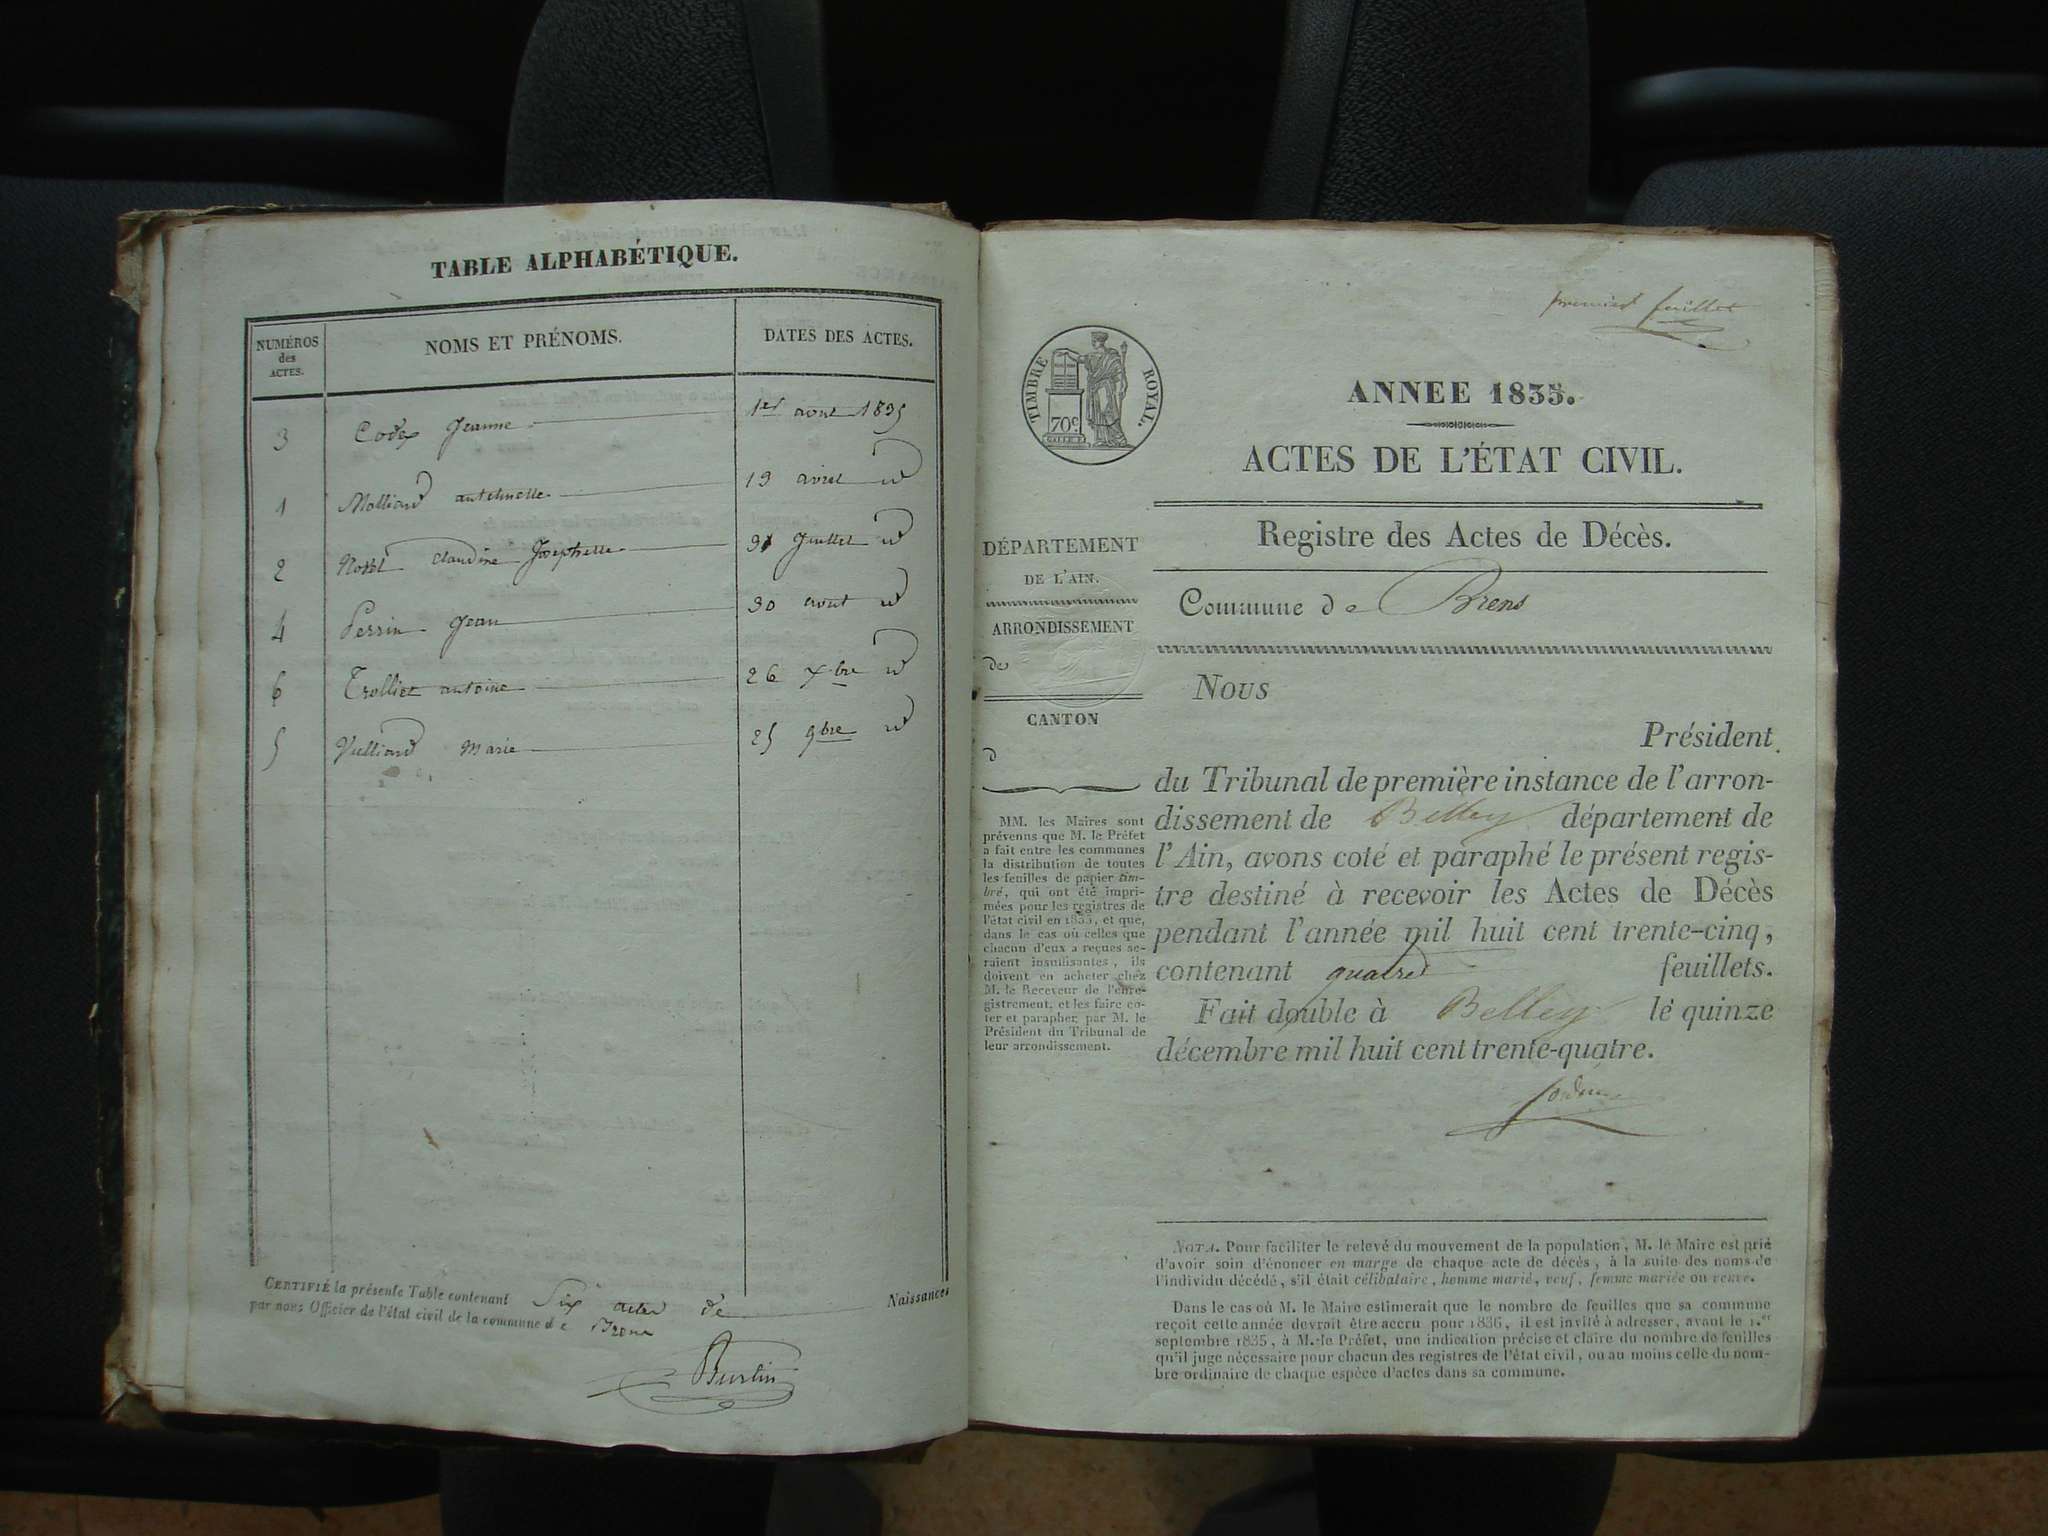 TABLE ALPHABÉTIQUE.
NUMÉROS
des
ACTES.
NOMS ET PRÉNOMS.
DATES DES ACTES.
3 Codex Jeanne 1er aout 1835
1 Molliard anthelmette 19 avril id
2 Claudine Josephette 31 Juillet id
4 Perrin Jean 30 aout id
6 Trolliet antoine 26 xbre id
5 Vulliard Marie 25 9bre id
CERTIFIÉ la présente Table contenant Six actes de Naissances
par nous Officier de l'état civil de la commune de Brens
Burlin
premier feuillet
TIMBRE ROYAL.
70c
ANNEE 1835.
ACTES DE L'ÉTAT CIVIL.
Registre des Actes de Décès.
Commune de Brens
DÉPARTEMENT
DE L'AIN.
ARRONDISSEMENT
de
CANTON
d
MM. les Maires sont
prévenus que M. le Préfet
a fait entre les communes
la distribution de toutes
les feuilles de papier tim-
bré, qui ont été impri-
mées pour les registres de
l'état civil en 1835, et que,
dans le cas où celles que
chacun d'eux a reçues se-
raient insuffisantes, ils
doivent en acheter chez
M. le Receveur de l'enre-
gistrement, et les faire co-
ter et parapher par M. le
Président du Tribunal de
leur arrondissement.
NOUS
Président
du Tribunal de première instance de l'arron-
dissement de Belley département de
l'Ain, avons coté et paraphé le présent regis-
tre destiné à recevoir les Actes de Décès
pendant l'année mil huit cent trente-cinq,
contenant quatre feuillets.
Fait double à Belley le quinze
décembre mil huit cent trente-quatre.
NOTA. Pour faciliter le relevé du mouvement de la population, M. le Maire est prié
d'avoir soin d'énoncer en marge de chaque acte de décès, à la suite des noms de
l'individu décédé, s'il était célibataire, homme marié, veuf, femme mariée ou veuve.
Dans le cas où M. le Maire estimerait que le nombre de feuilles que sa commune
reçoit cette année devrait être accru pour 1836, il est invité à adresser, avant le 1.er
septembre 1835, à M. le Préfet, une indication précise et claire du nombre de feuilles
qu'il juge nécessaire pour chacun des registres de l'état civil, ou au moins celle du nom-
bre ordinaire de chaque espèce d'actes dans sa commune.